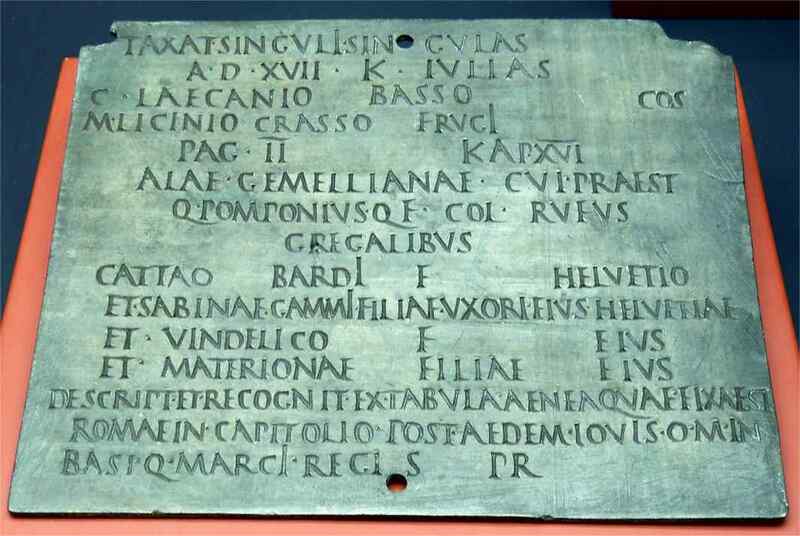 TAXAT·SINGVLI·SINGVLAS
A·D·XVII·K·IVLIAS
C·LAECANIO BASSO COS
M·LICINIO CRASSO FRVGI
PAG·II KAPXVI
ALAE·GEMELLIANAE·CVI·PRAEST
Q·POMPONIVS·Q·F·COL·RVFVS
GREGALIBVS
CATTAO BARDI F HELVETIO
ET·SABINAE·GAMMI·FILIAE·VXORI·EIVS HELVETIAE
ET·VINDELICO F EIVS
ET·MATERIONAE FILIAE EIVS
DESCRIPT·ET·RECOGNIT·EX·TABVLA·AENEA QVAE FIXA EST
ROMAE IN·CAPITOLIO·POST·AEDEM·IOVIS·O·M·IN
BASI·Q·MARCI·REGIS PR